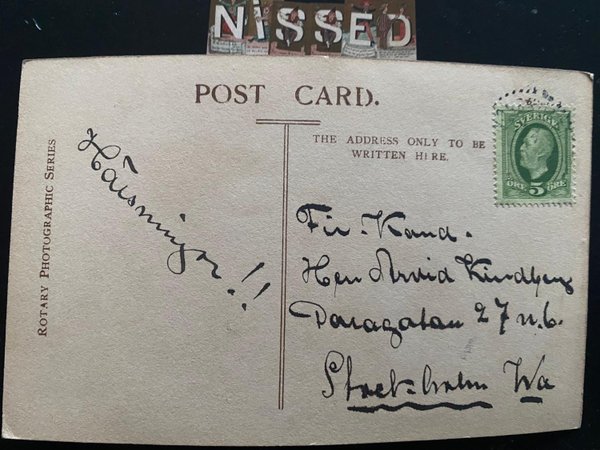 NiSSED
POST CARD.
THE ADDRESS ONLY TO BE
WRITTEN HERE.
ROTARY PHOTOGRAPHIC SERIES
Hälsningar!!
SVERIGE
ÖRE 5 ÖRE
Fil. Kand.
Herr Arvid Lindberg
27 n.b.
Stockholm Va